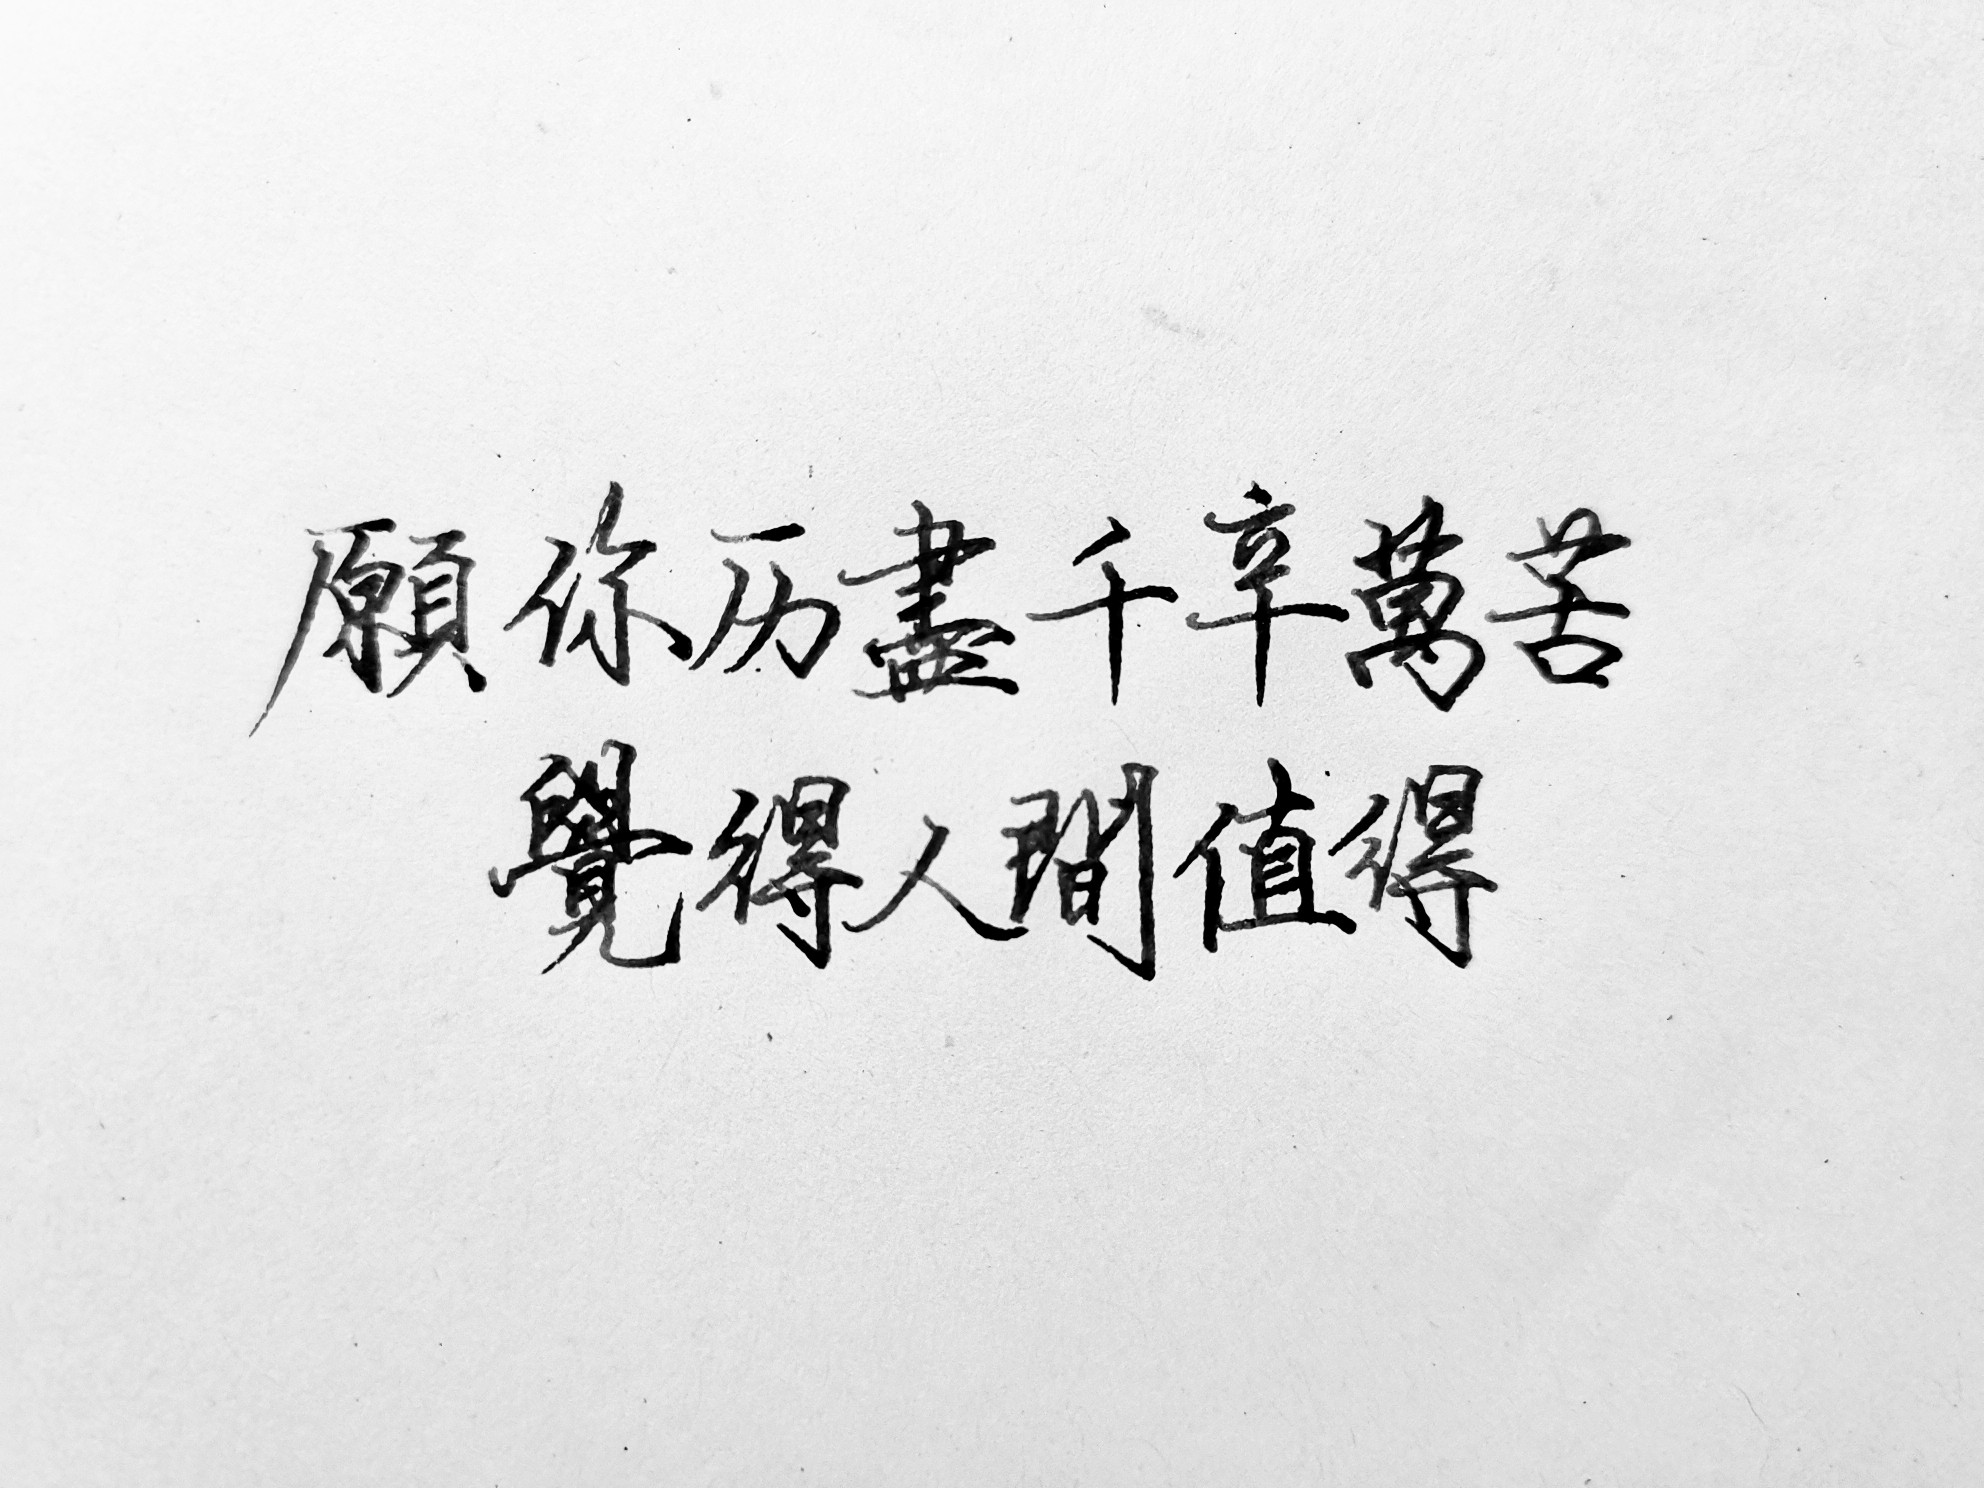 願你历盡千辛萬苦
覺得人間值得